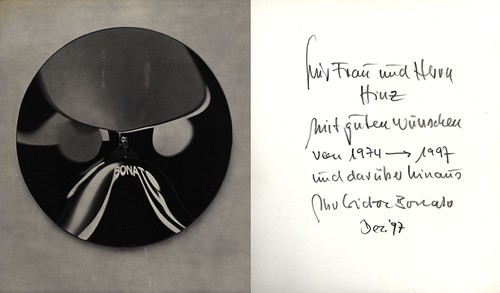 BONATO
für Frau und Herrn
Hinz
mit guten Wünschen
von 1974 → 1997
und darüber hinaus
Ihr Victor Bonato
Dez. '97